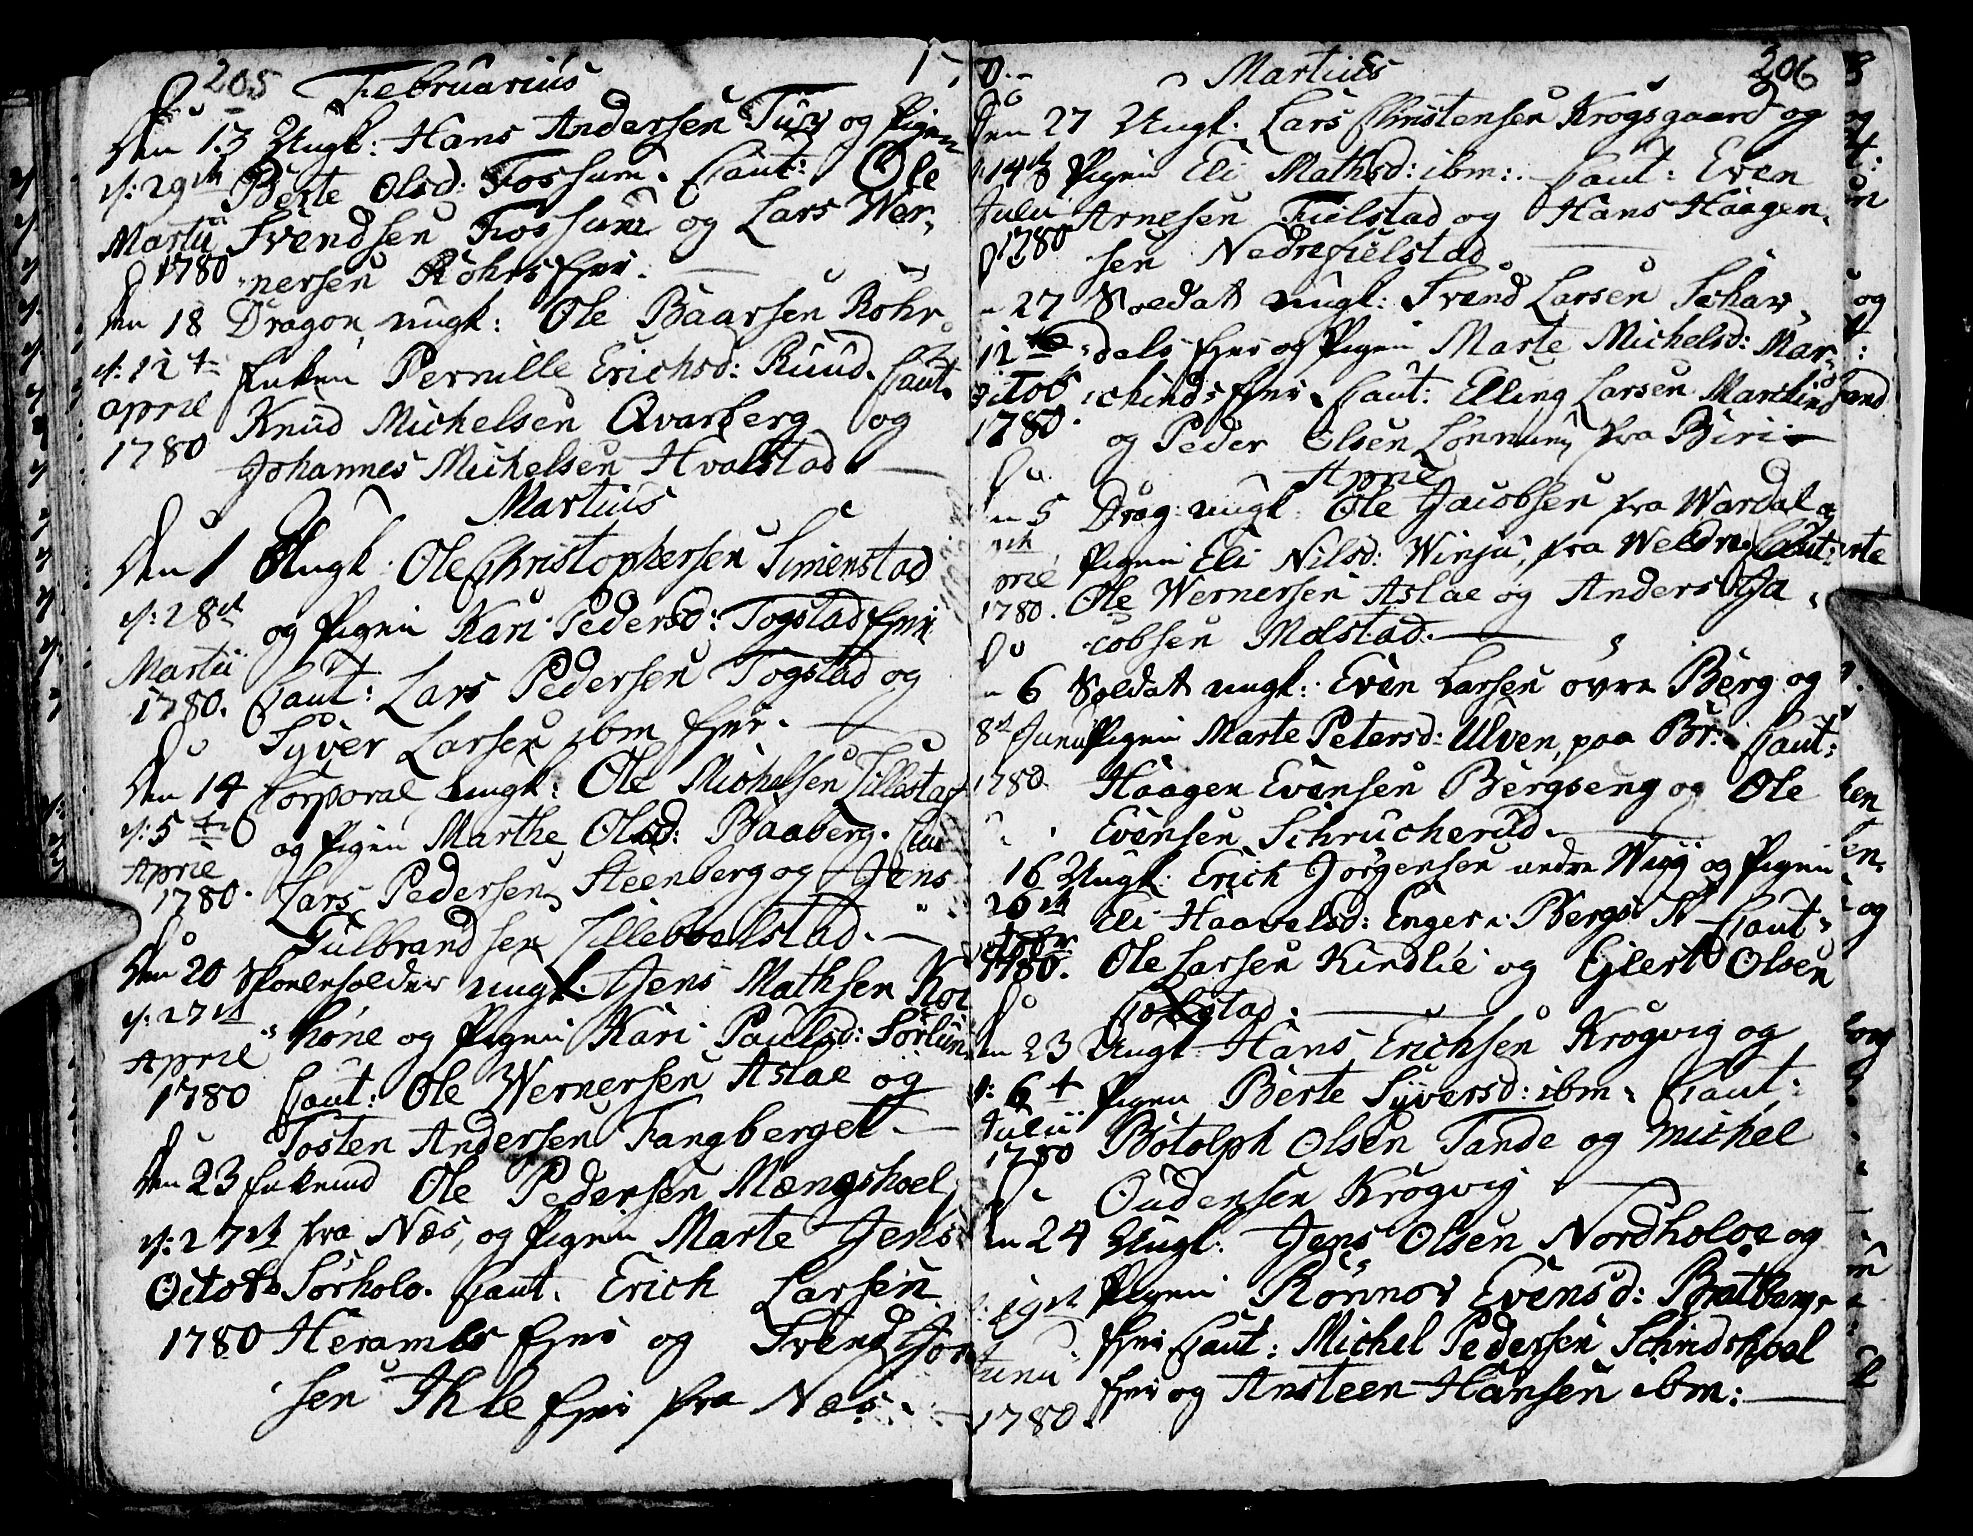 205 Februarius 17
Den 13 Ungk: Hans Andersen Tury og Pigen
c/: 29de Berte Olsd: Fossum. Caut: Ole
Martii Svendsen Fossum og Lars Wer,
1780 nersen Rohrs Eyer.
Den 18 Dragon, ungk: Ole Baarsen Rohr og
c/: 12te Enken Pernille Erichsd: Ruud. Caut.
April Knud Michelsen Qvarberg og
1780 Johannes Michelsen Hvalstad
Martius
Den 1 Ungk: Ole Christophersen Simenstad
c/: 28de og Pigen Kari Pedersd: Togstad Eyer
Martii Caut: Lars Pedersen Togstad og
1780. Syver Larsen ibm Eyer.
Den 14 Corporal ungk: Ole Michelsen Lillestad
c/: 5te og Pigen Marthe Olsd: Baaberg. Caut
April Lars Pedersen Steenberg og Jens
1780. Gulbrandsen Lillehvalstad.
Den 20 Skoleholder ungk. Jens Mathsen Koe
c/: 27de höne og Pigen Kari Paulsd: Sörlün
April Caut: Ole Wernersen Aslae og
1780 Tosten Andersen Fangberget.
Den 23 Enkemd Ole Pedersen Mængshoel,
c/: 27de fra Næs, og Pigen Marte Jens
Octobr Sørholo. Caut. Erich Larsen
1780 Herambs Eyer og Svend Jon
sen Ihle Eyer fra Næs.
0. Martius 206
Den 27 Ungk. Lars Christensen Krogsgaard og
14de Pigen Eli Mathsd: ibm: Caut: Even
Julii Arnesen Fielstad og Hans Haagen,
1780 sen Nedrefielstad
27 Soldat ungk: Svend Larsen Schar,
12te dels Eyer og Pigen Marte Michelsd: Mar,
Octob chinds Eyer. Caut: Elling Larsen Marchind
1780. og Peder Olsen Lönnum fra Biri
April
5 Drag: ungk: Ole Jacobsen fra Wardal og
Pigen Eli Nilsd: Winju, fra Weldre. Caut:
pril Ole Wernersen Aslae og Anders Ja,
1780. cobsen Mælstad.
6 Soldat ungk: Even Larsen øvre Berg og
8de Junii Pigen Marte Petersd: Ulven, paa Br: Caut:
1780. Haagen Evensen Bergseng og Ole
Evensen Schrucherud.
16 Ungk: Erich Jørgensen nedre Wiig og Pigen
26de Eli Haavelsd: Enger i Bergs A Caut:
octobr Ole Larsen Kindlie og Ejlert Olsen
1780. Golstad.
Den 23 Ungk: Hans Erichsen Krogvig og
c/: 6te Pigen Berte Syversd: ibm. Caut:
Julii Botolph Olsen Tande og Michel
1780 Oudensen Krogvig
Den 24 Ungk: Jens Olsen Nordholoe og
19de Pigen Rönnov Evensd: Bratbergs
Junii Eyer Caut: Michel Pedersen Schredshoel
1780. Eyer og Ansteen Hansen ibm: